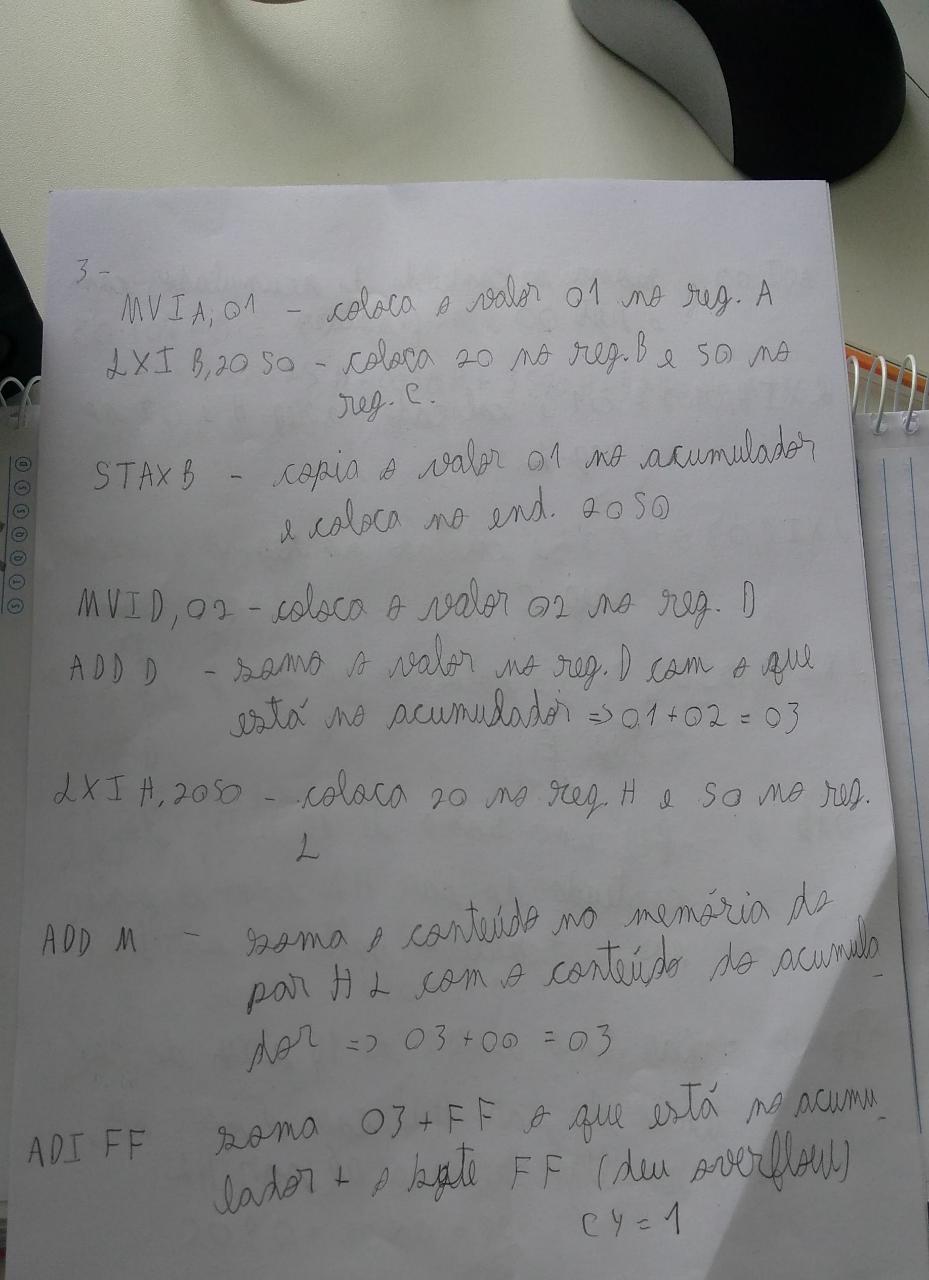 3-
MVI A, 01 - coloca o valor 01 no reg. A
LXI B, 2050 - coloca 20 no reg. B e 50 no
reg. C.
STAX B - copia o valor 01 no acumulador
e coloca no end. 2050
MVI D, 02 - coloca o valor 02 no reg. D
ADD D - soma o valor no reg. D com o que
está no acumulador => 01 + 02 = 03
LXI H, 2050 - coloca 20 no reg. H e 50 no reg.
L
ADD M - soma o conteúdo na memória do
par H L com o conteúdo do acumula_
dor => 03 + 00 = 03
ADI FF soma 03 + FF o que está no acumu_
lador + o byte FF (deu overflow)
CY = 1